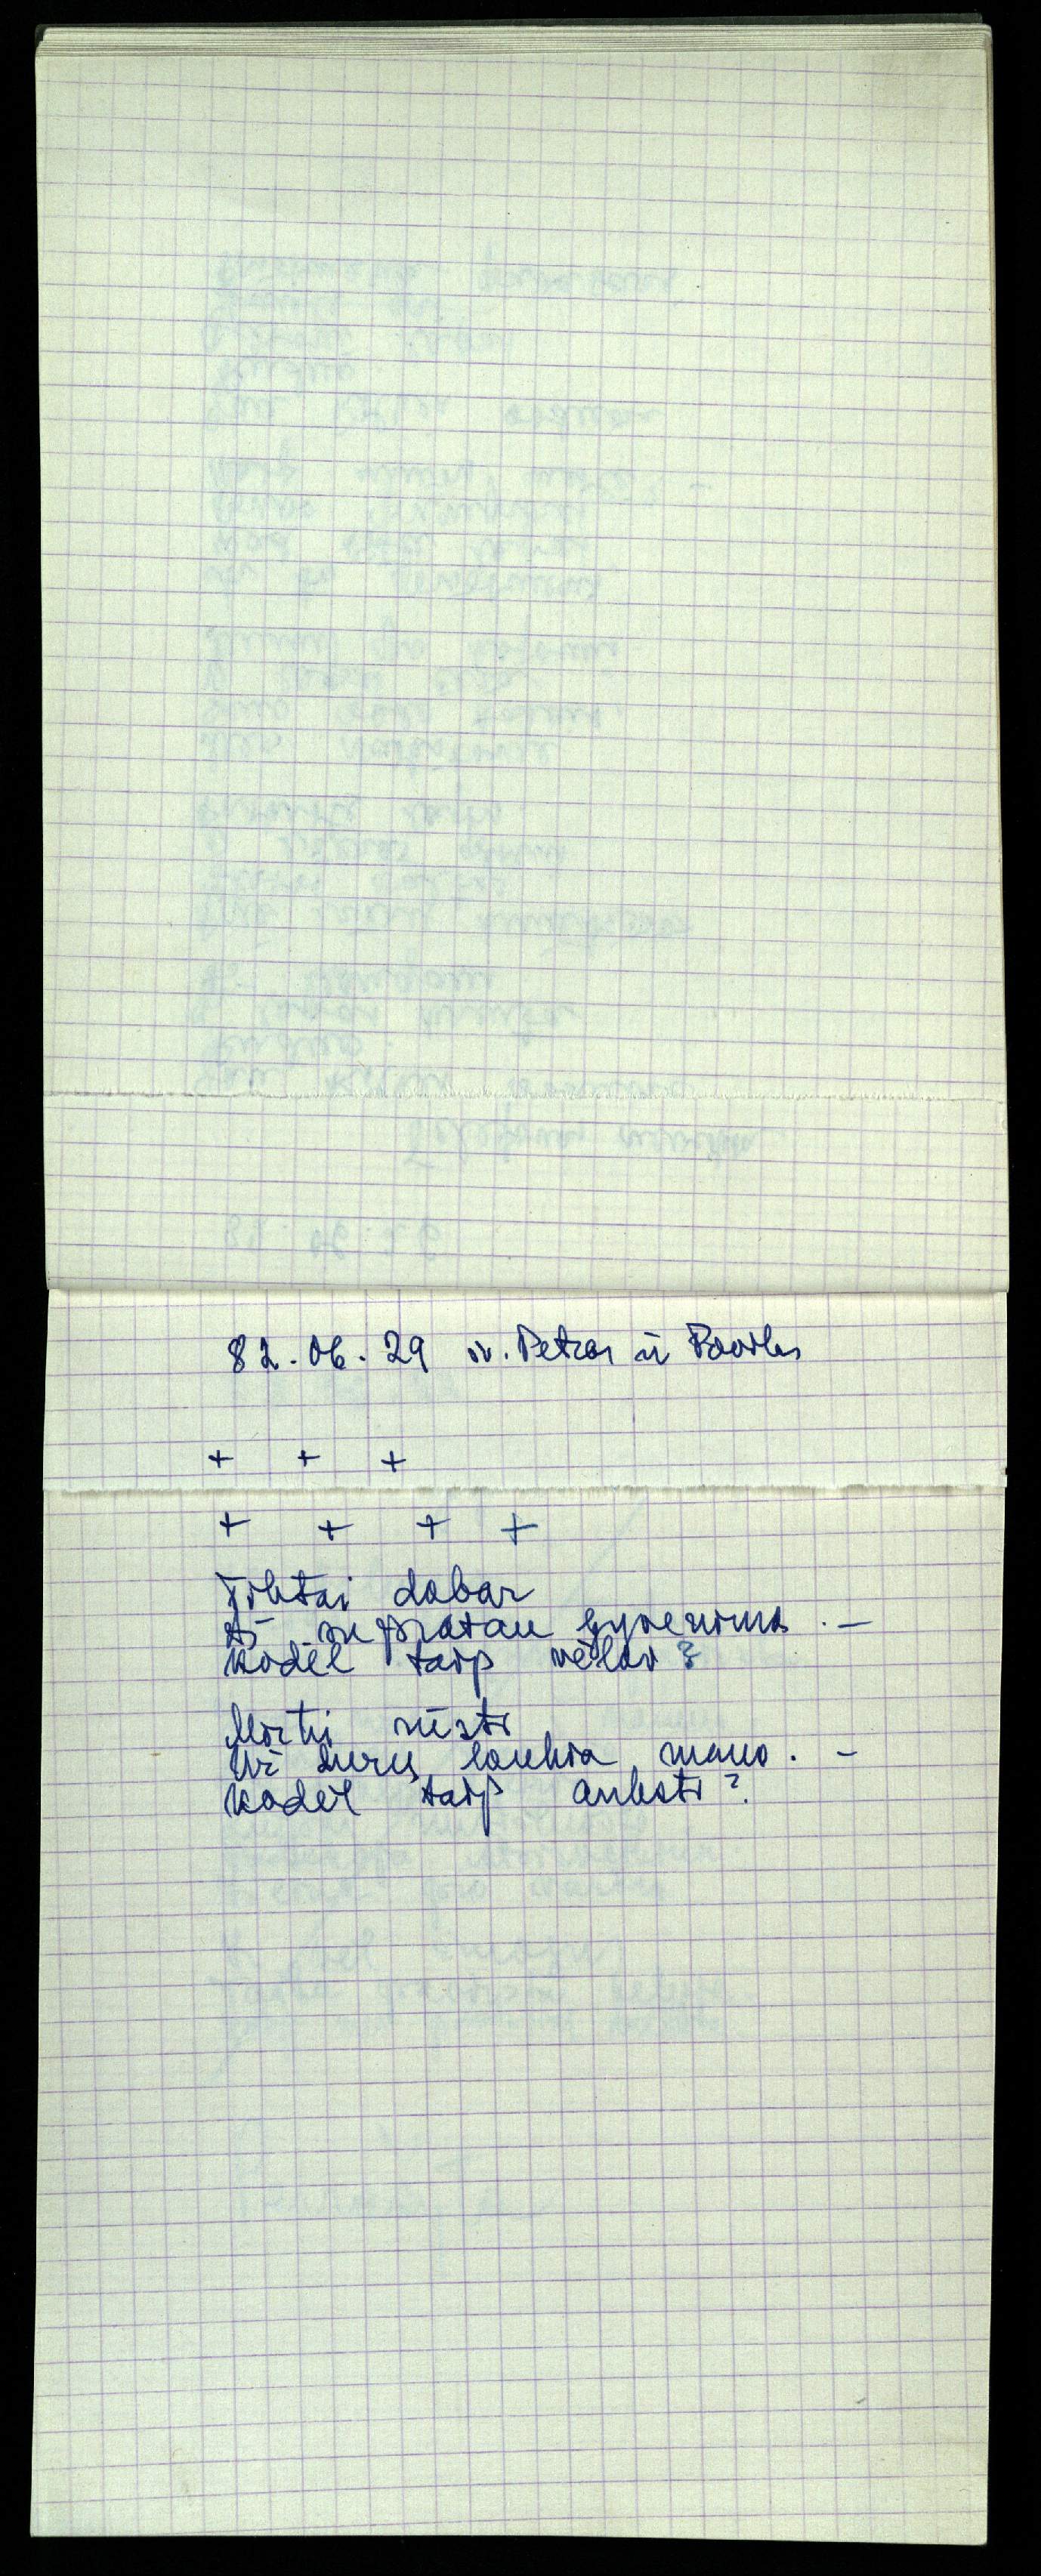 82.06.29 šv. Petras ir Povilas
+ + +
+ + + +
Tiktai dabar
Aš supratau gyvenimą. —
Kodėl taip vėlai?
Mirtis
Už durų laukia mano. —
Kodėl taip anksti?